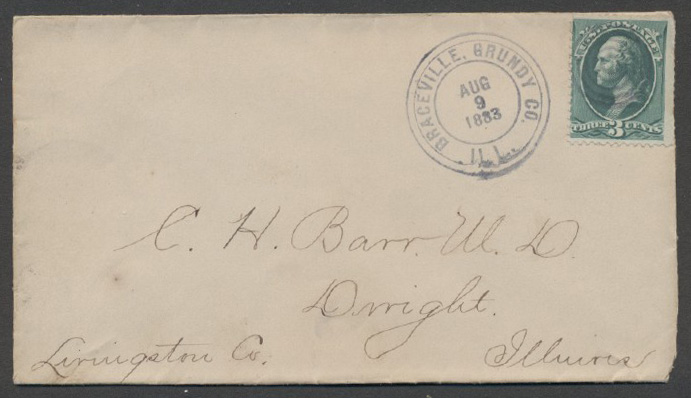 BRACEVILLE, GRUNDY CO.
AUG
9
1883
ILL.
U.S. POSTAGE
THREE 3 CENTS
C. H. Barr. M. D
Dwight.
Livingston Co. Illinois